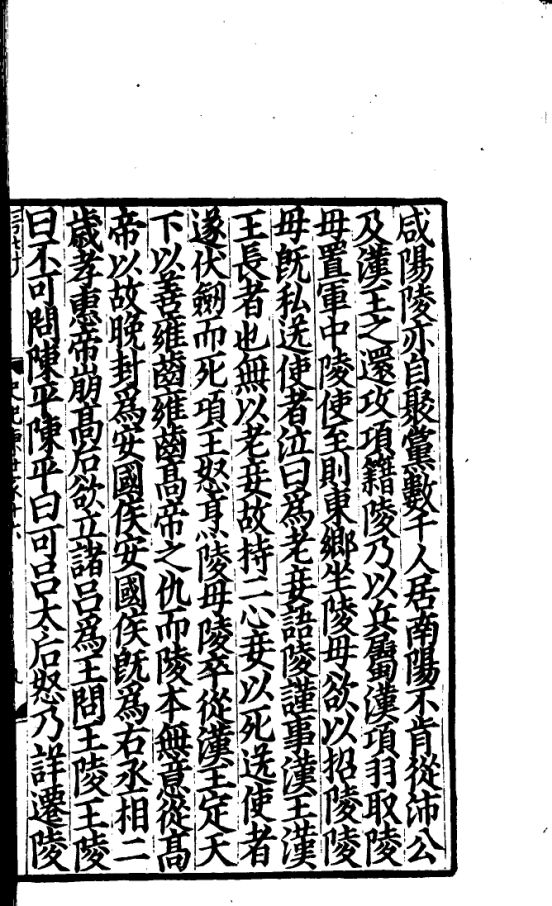 咸陽陵亦自聚黨數千人居南陽不肯從沛公
及漢王之還攻項籍陵乃以兵屬漢項羽取陵
母置軍中陵使至則東鄉坐陵母欲以招陵陵
母旣私送使者泣曰爲老妾語陵謹事漢王漢
王長者也無以老妾故持二心妾以死送使者
遂伏劒而死項王怒亨陵母陵卒從漢王定天
下以善雍齒雍齒高帝之仇而陵本無意從高
帝以故晚封爲安國侯安國侯旣爲右丞相二
歲孝惠帝崩高后欲立諸呂爲王問王陵王陵
曰不可問陳平陳平曰可呂太后怒乃詳遷陵